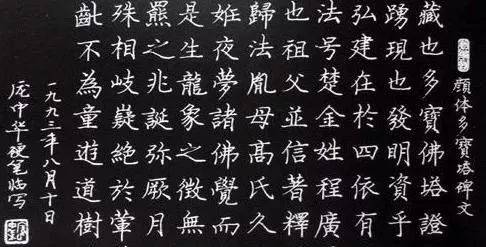 顏体多寶塔碑文
藏也多寶佛塔證
踴現也發明資乎
弘建在於四依有
法号楚金姓程廣
也祖父並信著釋
歸法胤母高氏久
姙夜夢諸佛覺而
是生龍象之徵無
羆之兆誕弥厥月
殊相岐嶷絕於葷
齔不為童遊道樹
一九九三年八月十日
庞中华硬笔临写